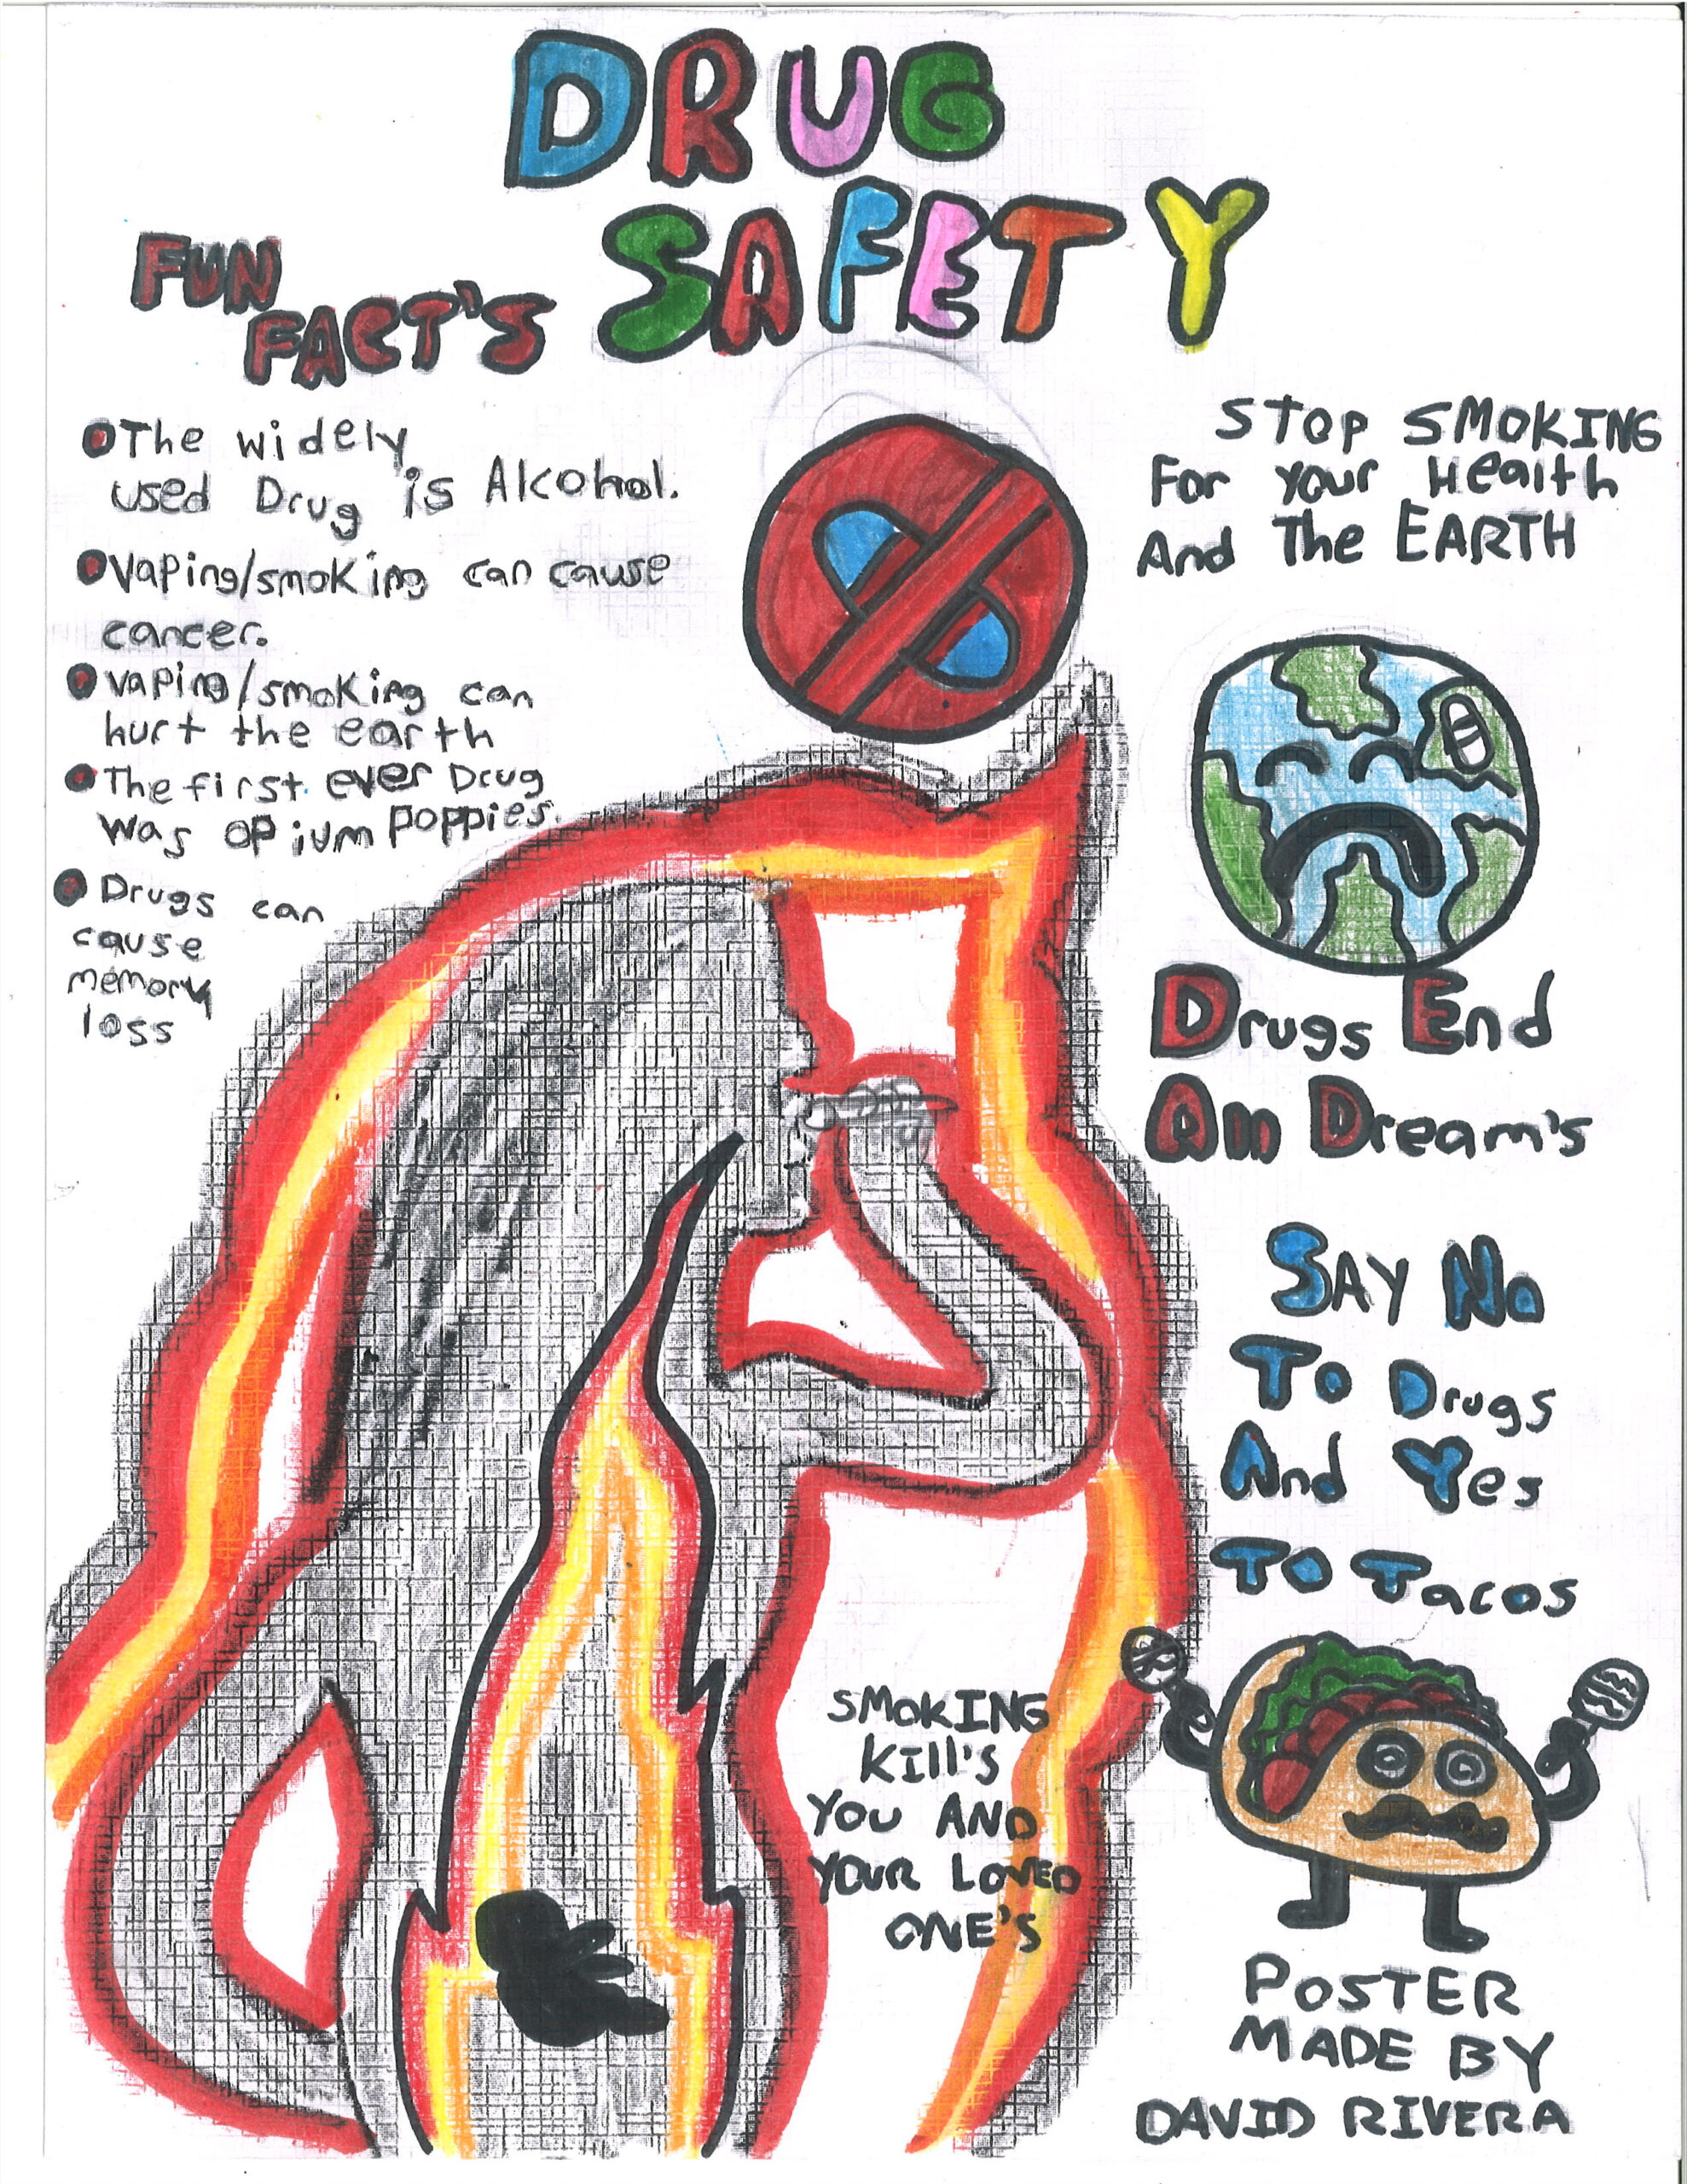 DRUG
SAFETY
FUN
FACT'S
The widely
used Drug is Alcohol.
Vaping/smoking can cause
cancer.
vaping/smoking can
hurt the earth
The first ever Drug
was opium poppies.
Drugs can
cause
memory
loss
STOP SMOKING
For your Health
And The EARTH
Drugs End
All Dream's
SAY No
To Drugs
And Yes
To Tacos
SMOKING
Kill's
YOU AND
YOUR LOVED
ONE'S
POSTER
MADE BY
DAVID RIVERA